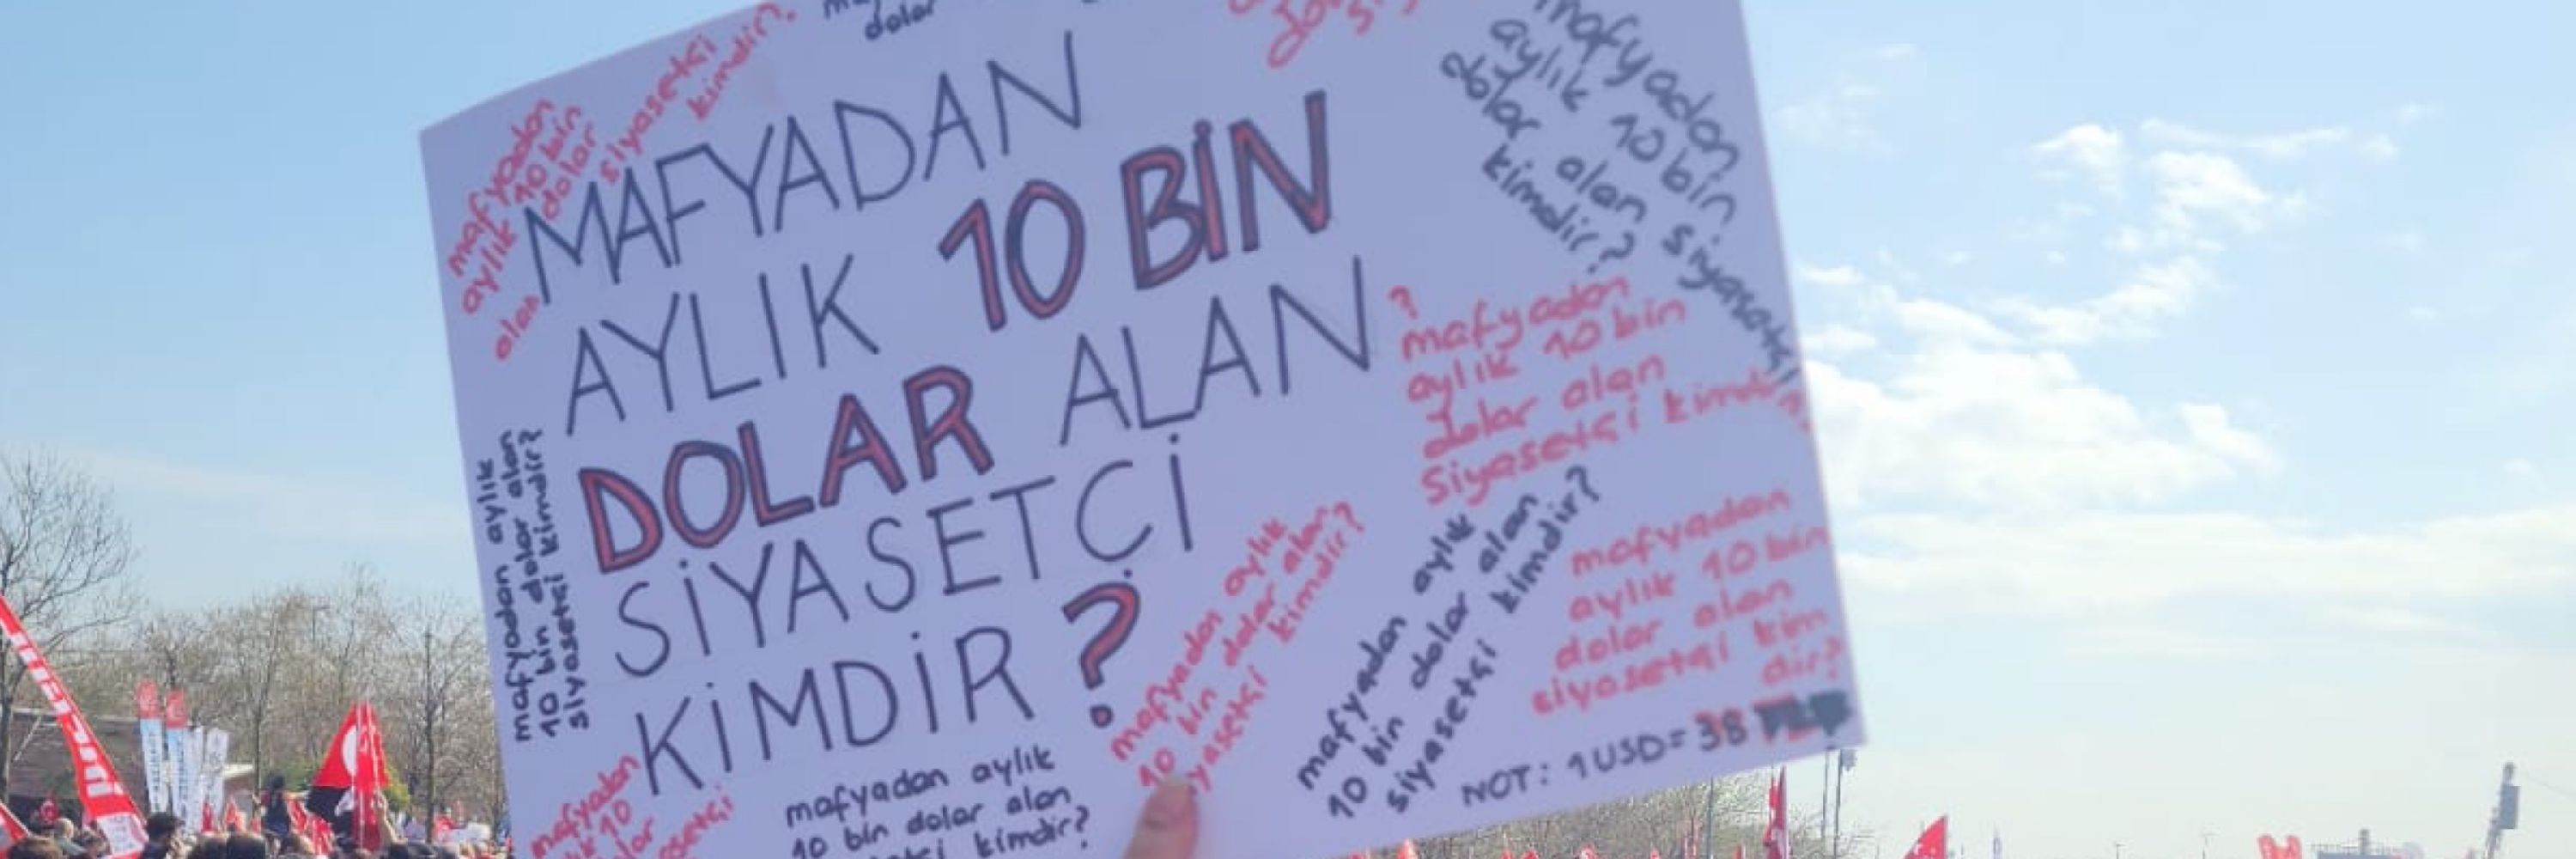 dolar
mafyadan
aylık 10 bin
dolar
alan
siyasetçi
kimdir?
MAFYADAN
AYLIK 10 BİN
DOLAR ALAN
SİYASETÇİ
KİMDİR?
mafyadan
aylık 10 bin
dolar alan siyasetçi
kimdir?
?
mafyadan
aylık 10 bin
dolar alan
siyasetçi kimdir?
mafyadan aylık
10 bin dolar alan
siyasetçi kimdir?
mafyadan
10
siyasetçi
mafyadan aylık
10 bin dolar alan
kimdir?
mafyadan aylık
10 bin dolar alan
siyasetçi kimdir?
mafyadan aylık
10 bin dolar alan
siyasetçi kimdir?
mafyadan
aylık 10 bin
dolar alan
siyasetçi kim
dir?
NOT: 1 USD = 38